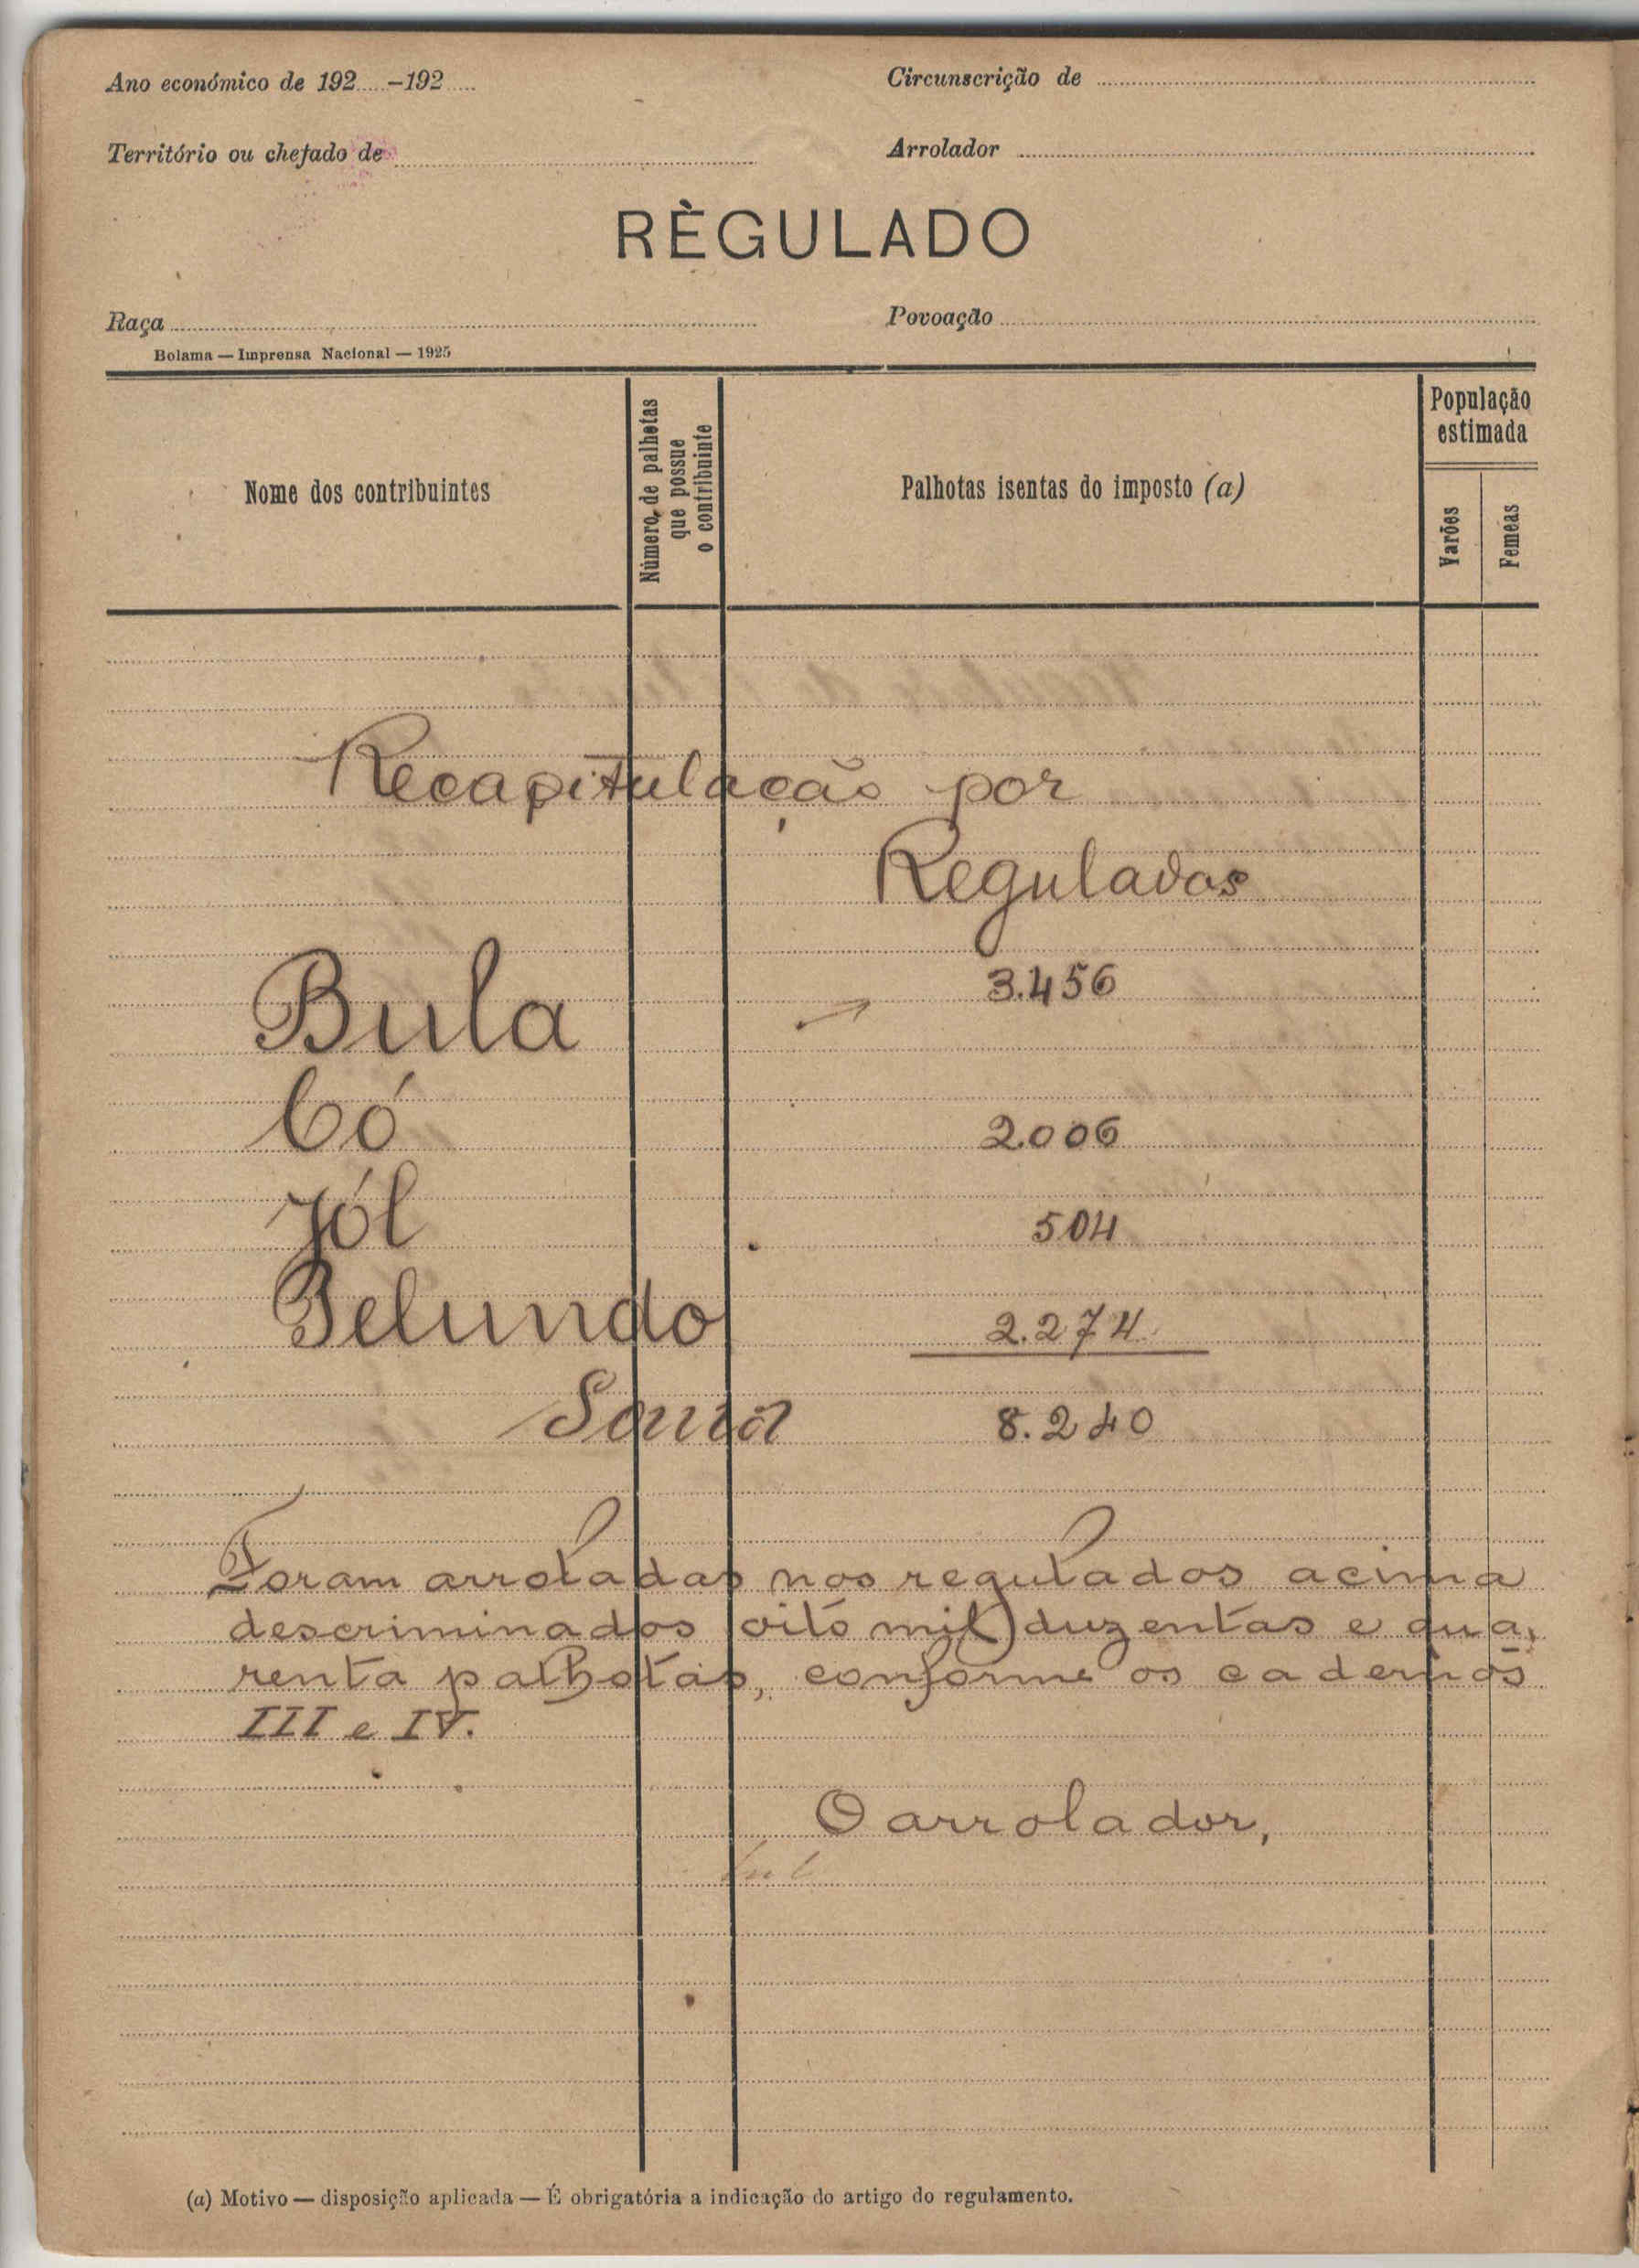 Ano económico de 192.....-192.....
Circunscrição de
Território ou chefado de
Arrolador
RÈGULADO
Raça
Povoação
Bolama — Imprensa Nacional — 1925
Nome dos contribuintes
Número de palhotas que possue o contribuinte
Palhotas isentas do imposto (a)
População estimada
Varões
Femeas
Recapitulação por
Regulados
Bula 3.456
Có 2.006
Jól 504
Pelundo 2.274
Soma 8.240
Foram arroladas nos regulados acima
descriminados oito mil duzentas e qua-
renta palhotas, conforme os cadernos
III e IV.
O arrolador,
(a) Motivo — disposição aplicada — É obrigatória a indicação do artigo do regulamento.